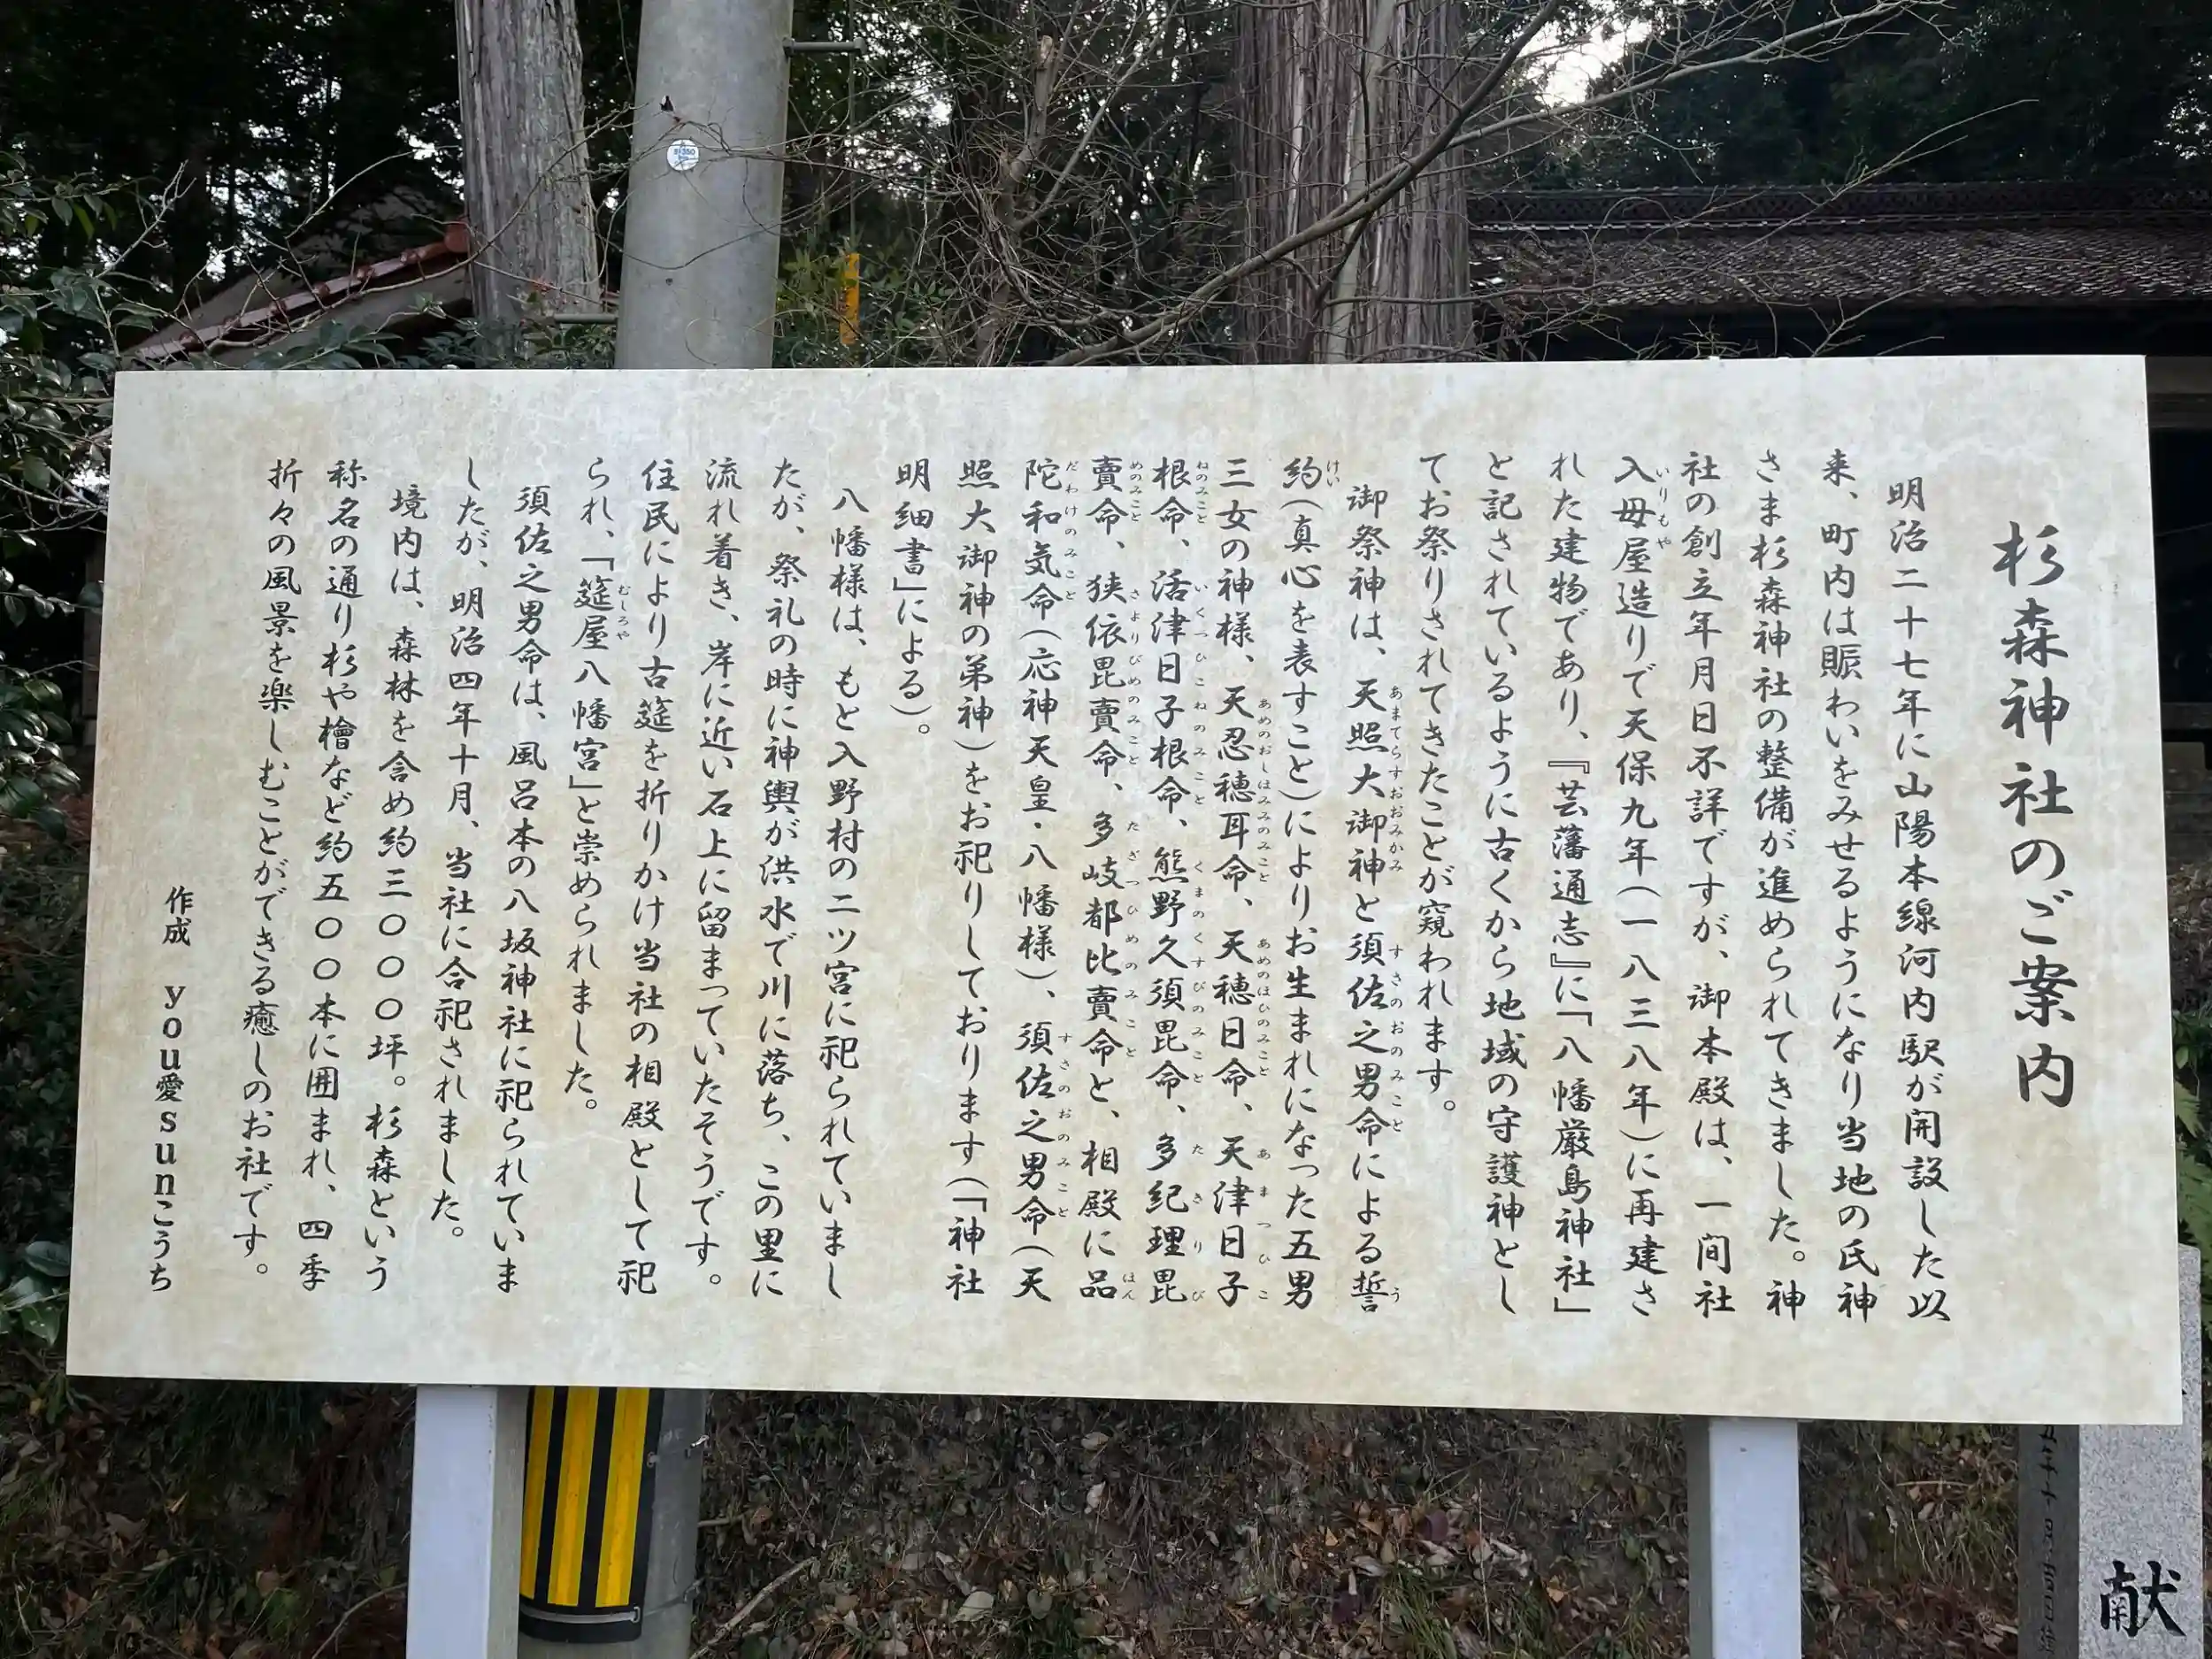 杉森神社のご案内
明治二十七年に山陽本線河内駅が開設した以
来、町内は賑わいをみせるようになり当地の氏神
さま杉森神社の整備が進められてきました。神
社の創立年月日不詳ですが、御本殿は、一間社
入母屋造りで天保九年(一八三八年)に再建さ
れた建物であり、『芸藩通志』に「八幡厳島神社」
と記されているように古くから地域の守護神とし
てお祭りされてきたことが窺われます。
御祭神は、天照大御神と須佐之男命による誓
約(真心を表すこと)によりお生まれになった五男
三女の神様、天忍穂耳命、天穂日命、天津日子
根命、活津日子根命、熊野久須毘命、多紀理毘
賣命、狭依毘賣命、多岐都比賣命と、相殿に品
陀和気命(応神天皇・八幡様)、須佐之男命(天
照大御神の弟神)をお祀りしております(「神社
明細書」による)。
八幡様は、もと入野村の二ツ宮に祀られていまし
たが、祭礼の時に神輿が洪水で川に落ち、この里に
流れ着き、岸に近い石上に留まっていたそうです。
住民により古筵を折りかけ当社の相殿として祀
られ、「筵屋八幡宮」と崇められました。
須佐之男命は、風呂本の八坂神社に祀られていま
したが、明治四年十月、当社に合祀されました。
境内は、森林を含め約三〇〇〇坪。杉森という
称名の通り杉や檜など約五〇〇本に囲まれ、四季
折々の風景を楽しむことができる癒しのお社です。
作成 you愛sunこうち
献